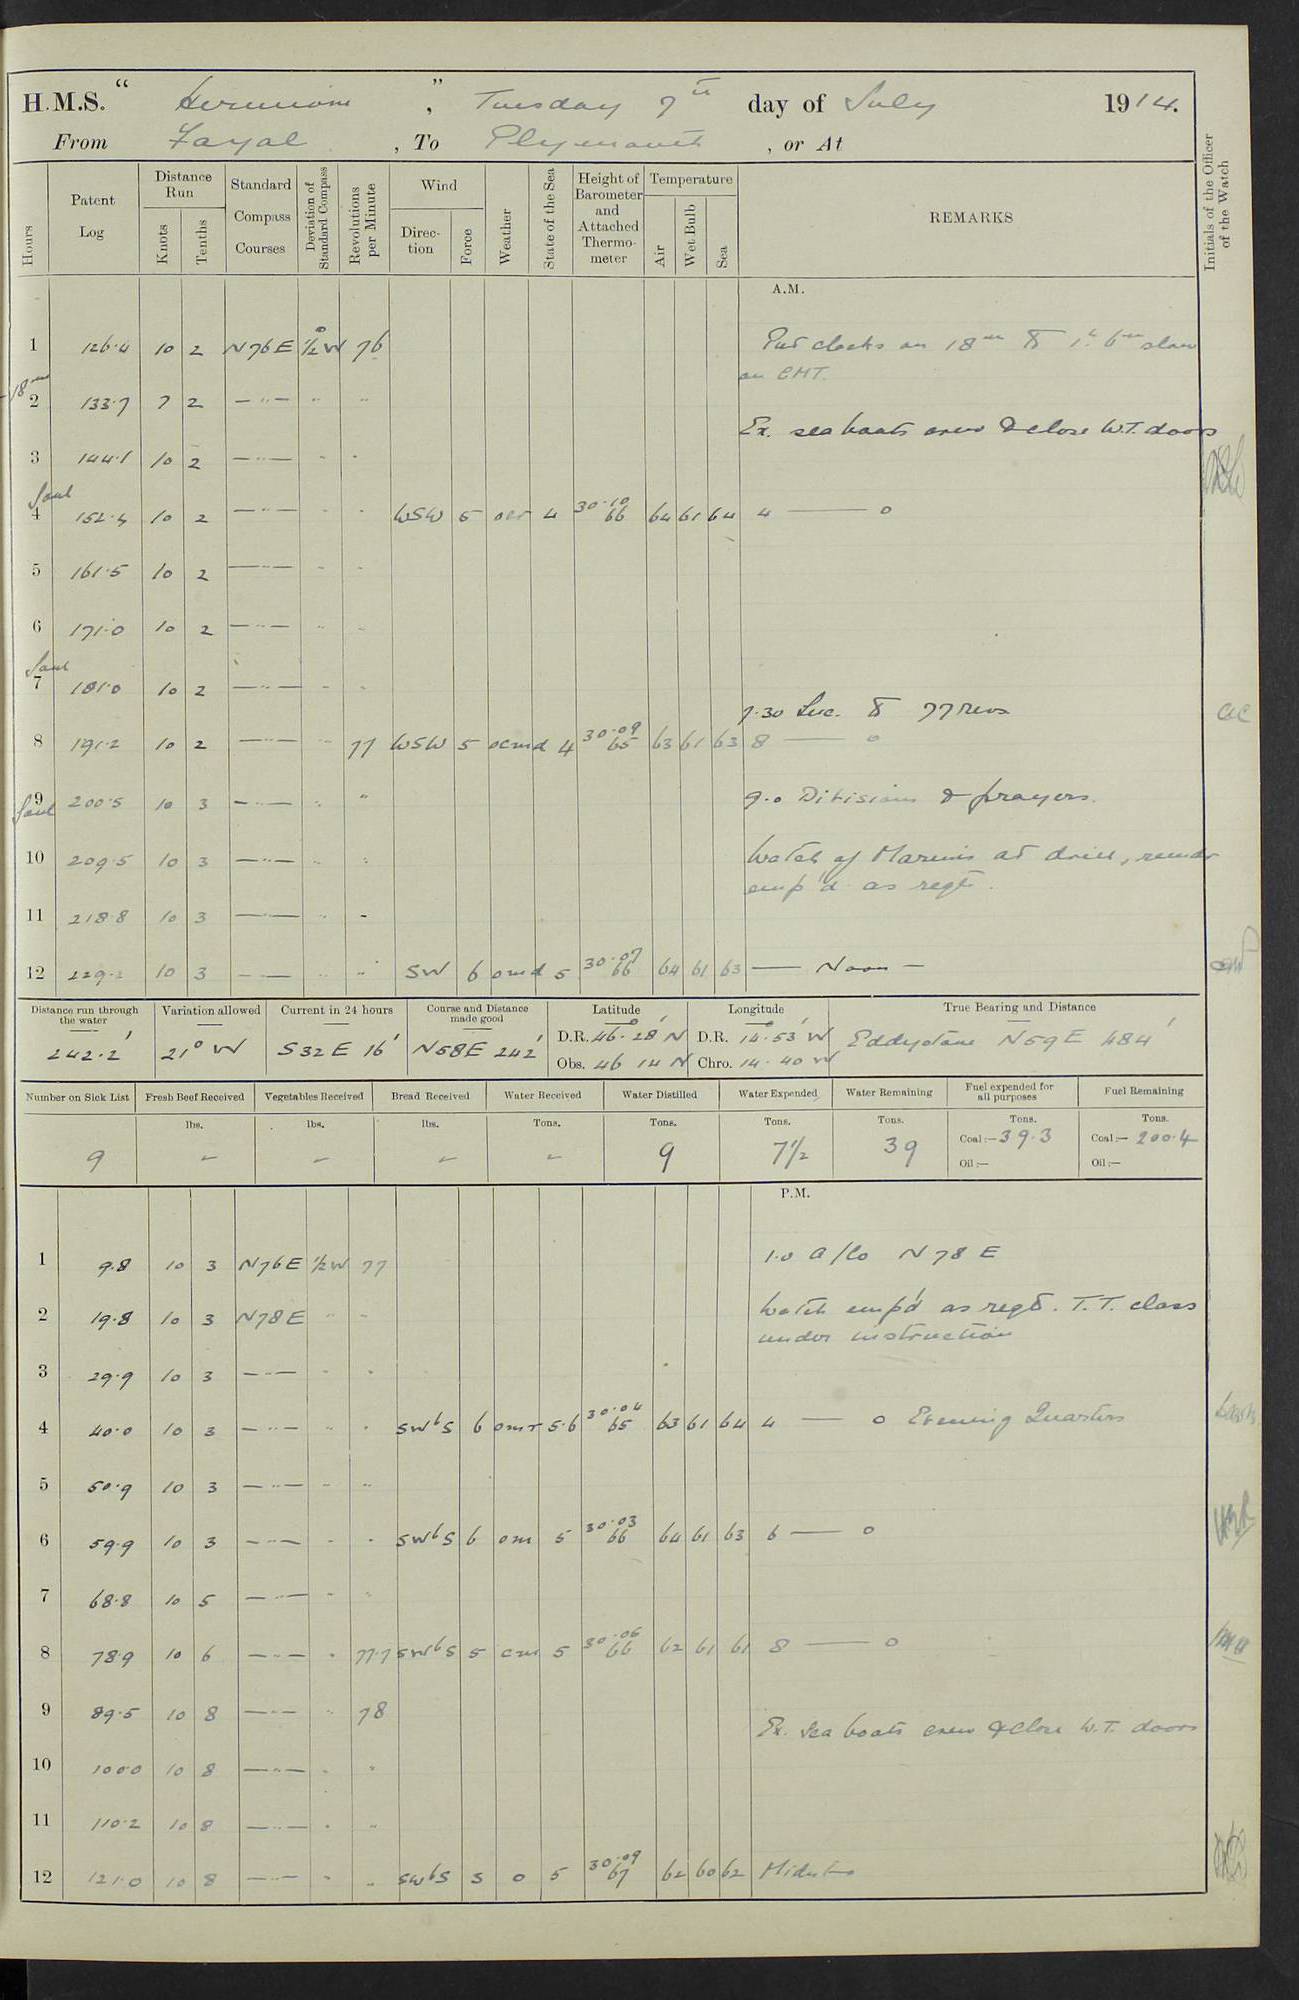 H.M.S. " Hermione ", Tuesday 7th day of July 1914.
From Fayal, To Plymouth, or At
Hours | Patent Log | Distance Run Knots Tenths | Standard Compass Courses | Deviation of Standard Compass | Revolutions per Minute | Wind Direction Force | Weather | State of the Sea | Height of Barometer and Attached Thermometer | Temperature Air Wet Bulb Sea | REMARKS | Initials of the Officer of the Watch
A.M.
1 126.4 10 2 N76E ½°W 76 Put clocks on 18m to 1h 6m slow
on GMT.
-18m
2 133.7 7 2 —"— " "
Ex. sea boats crew & close W.T. doors
3 144.1 10 2 —"— " "
4 152.4 10 2 —"— " " WSW 5 ocr 4 30.10 66 64 61 64 4 —— o
5 161.5 10 2 —"— " "
6 171.0 10 2 —"— " "
7 181.0 10 2 —"— " "
7.30 Inc. to 77 revs
8 191.2 10 2 —"— " 77 WSW 5 ocmd 4 30.09 65 63 61 63 8 —— o
9 200.5 10 3 —"— " " 9.0 Divisions & prayers.
10 209.5 10 3 —"— " " Watch of Marines at drill, remdr
emp'd as reqd.
11 218.8 10 3 —"— " "
12 229.2 10 3 —"— " " SW 6 omd 5 30.07 66 64 61 63 — Noon —
Distance run through the water | Variation allowed | Current in 24 hours | Course and Distance made good | Latitude | Longitude | True Bearing and Distance
242.2' 21° W S32E 16' N58E 242' D.R. 46° 28' N D.R. 14° 53' W Eddystone N59E 484'
Obs. 46 14 N Chro. 14. 40 W
Number on Sick List | Fresh Beef Received | Vegetables Received | Bread Received | Water Received | Water Distilled | Water Expended | Water Remaining | Fuel expended for all purposes | Fuel Remaining
lbs. lbs. lbs. Tons. Tons. Tons. Tons. Tons. Tons.
9 – – – – 9 7½ 39 Coal:– 39.3 Coal:– 200.4
Oil:– Oil:–
P.M.
1 9.8 10 3 N76E ½W 77 1.0 a/Co N78E
2 19.8 10 3 N78E " " Watch emp'd as reqd. T.T. class
under instruction
3 29.9 10 3 —"— " "
4 40.0 10 3 —"— " " SWbS 6 omr 5.6 30.04 65 63 61 64 4 —— o Evening Quarters
5 50.9 10 3 —"— " "
6 59.9 10 3 —"— " " SWbS 6 om 5 30.03 66 64 61 63 6 —— o
7 68.8 10 5 —"— " "
8 78.9 10 6 —"— " 77.7 SWbS 5 cm 5 30.06 66 62 61 61 8 —— o
9 89.5 10 8 —"— " 78
Ex. Sea boats crew & close W.T. doors
10 100.0 10 8 —"— " "
11 110.2 10 8 —"— " "
12 121.0 10 8 —"— " " SWbS 5 o 5 30.09 67 62 60 62 Midnt